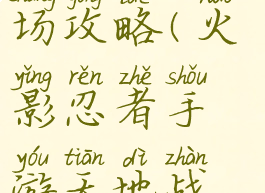 场攻略(火
yǐng rěn zhě shǒu
影忍者手
yóu tiān dì zhàn
游天地战